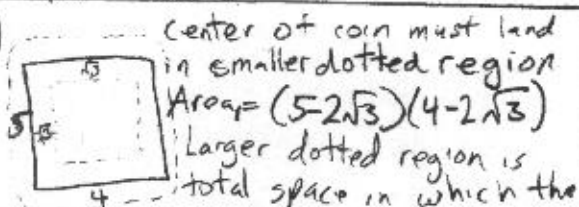 Center of coin must land
in smaller dotted region
√3
Area₁=(5-2√3)(4-2√3)
5
√3
Larger dotted region is
4
total space in which the